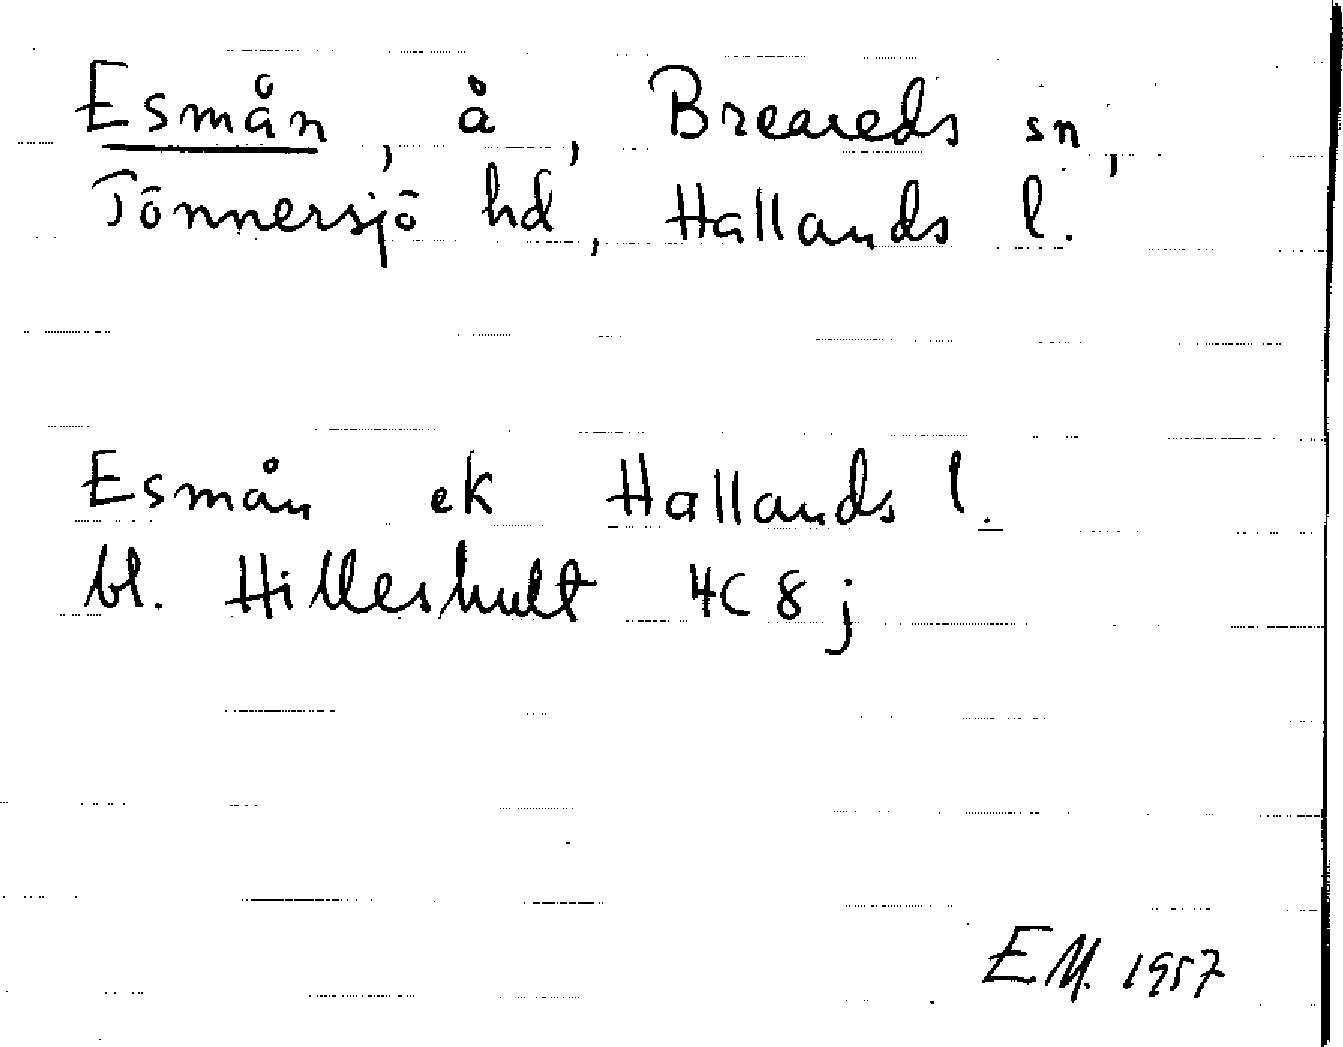 Esmån, å, Breareds sn,
Tönnersjö hd, Hallands l.
Esmån ek Hallands l.
bl. Hilleshult 4C 8j
EM. 1957